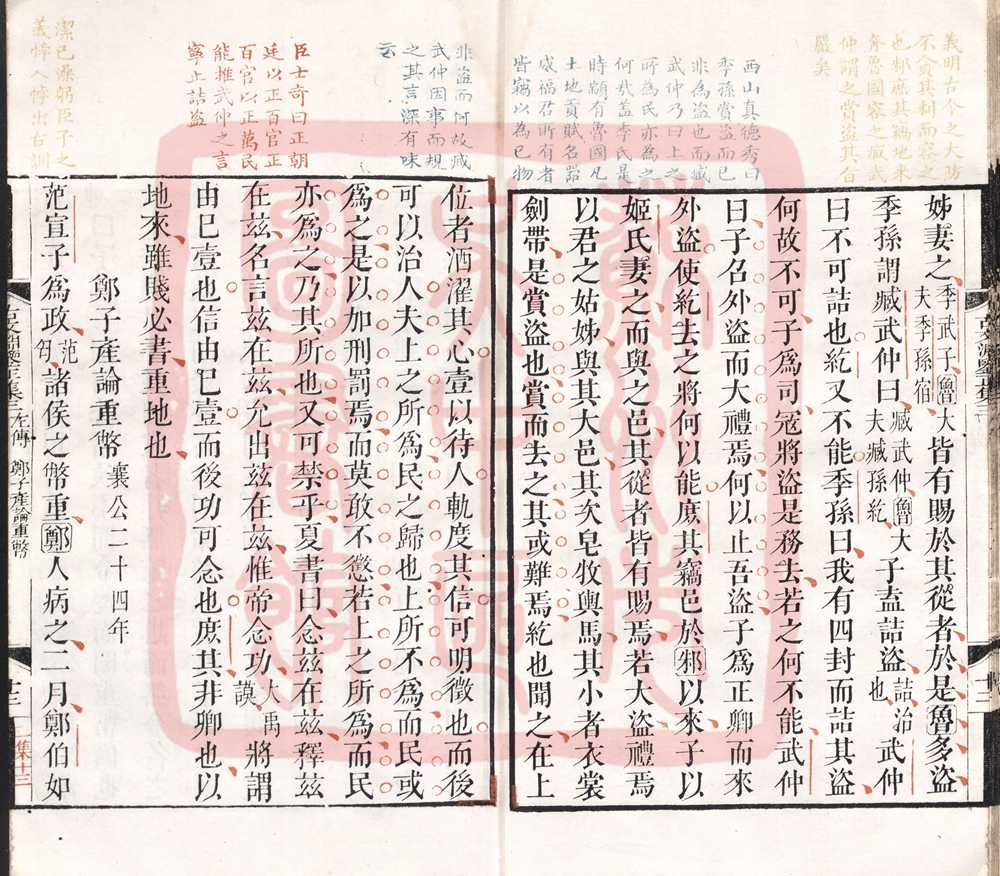 義明古今之大防
不貪其利而容之
也邾庶其竊地來
奔魯國容之臧武
仲謂之賞盜其合
嚴矣
西山真德秀曰
季孫賞盜而已
非為盜也而臧
武仲乃曰上之
所為民亦為之
何哉蓋季氏是
時顓有魯國凡
土地貢賦名器
威福君所有者
皆竊以為己物
姊妻之季武子魯大夫季孫宿皆有賜於其從者於是魯多盜
季孫謂臧武仲曰臧武仲魯大夫臧孫紇子盍詰盜詰治也武仲
曰不可詰也紇又不能季孫曰我有四封而詰其盜
何故不可子爲司寇將盜是務去若之何不能武仲
曰子召外盜而大禮焉何以止吾盜子爲正卿而來
外盜使紇去之將何以能庶其竊邑於邾以來子以
姬氏妻之而與之邑其從者皆有賜焉若大盜禮焉
以君之姑姊與其大邑其次皂牧輿馬其小者衣裳
劍帶是賞盜也賞而去之其或難焉紇也聞之在上
非盜而何故臧
武仲因事而規
之其言深有味
云
臣士奇曰正朝
廷以正百官正
百官以正萬民
能推武仲之言
寧止詰盜
潔己澡躬臣子之
義悖入悖出古訓
位者洒濯其心壹以待人軌度其信可明徵也而後
可以治人夫上之所爲民之歸也上所不爲而民或
爲之是以加刑罰焉而莫敢不懲若上之所爲而民
亦爲之乃其所也又可禁乎夏書曰念兹在兹釋兹
在兹名言兹在兹允出兹在兹惟帝念功大禹謨將謂
由已壹也信由已壹而後功可念也庶其非卿也以
地來雖賤必書重地也
鄭子產論重幣襄公二十四年
范宣子爲政范匄諸侯之幣重鄭人病之二月鄭伯如
左傳 鄭子產論重幣